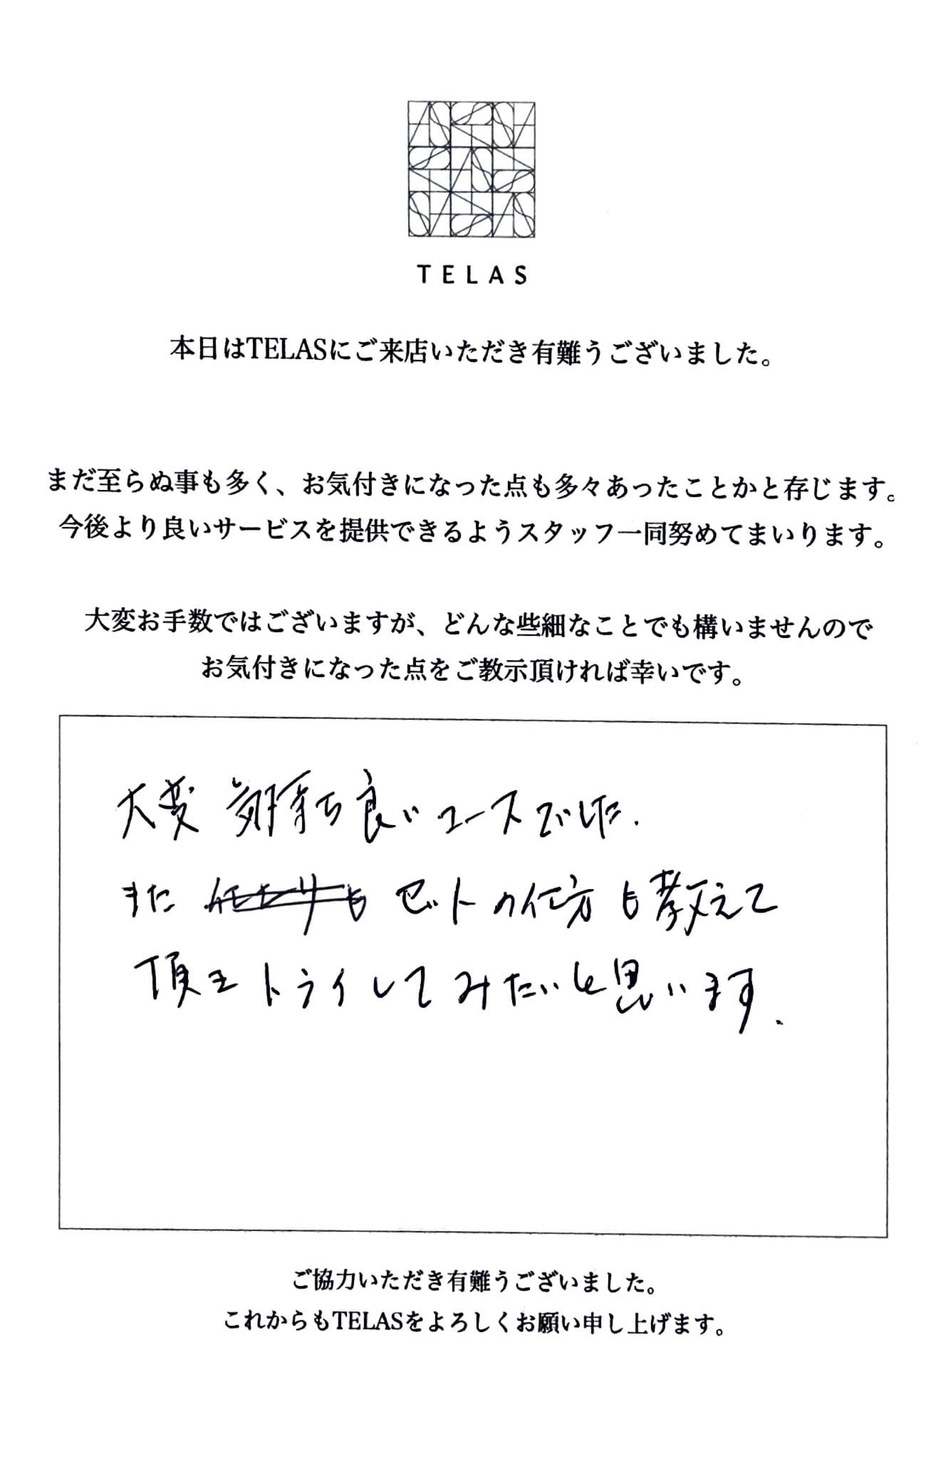 TELAS
本日はTELASにご来店いただき有難うございました。
まだ至らぬ事も多く、お気付きになった点も多々あったことかと存じます。
今後より良いサービスを提供できるようスタッフ一同努めてまいります。
大変お手数ではございますが、どんな些細なことでも構いませんので
お気付きになった点をご教示頂ければ幸いです。
大変 気持ち良いコースでした.
また セットの仕方も教えて
頂き トライしてみたいと思います.
ご協力いただき有難うございました。
これからもTELASをよろしくお願い申し上げます。